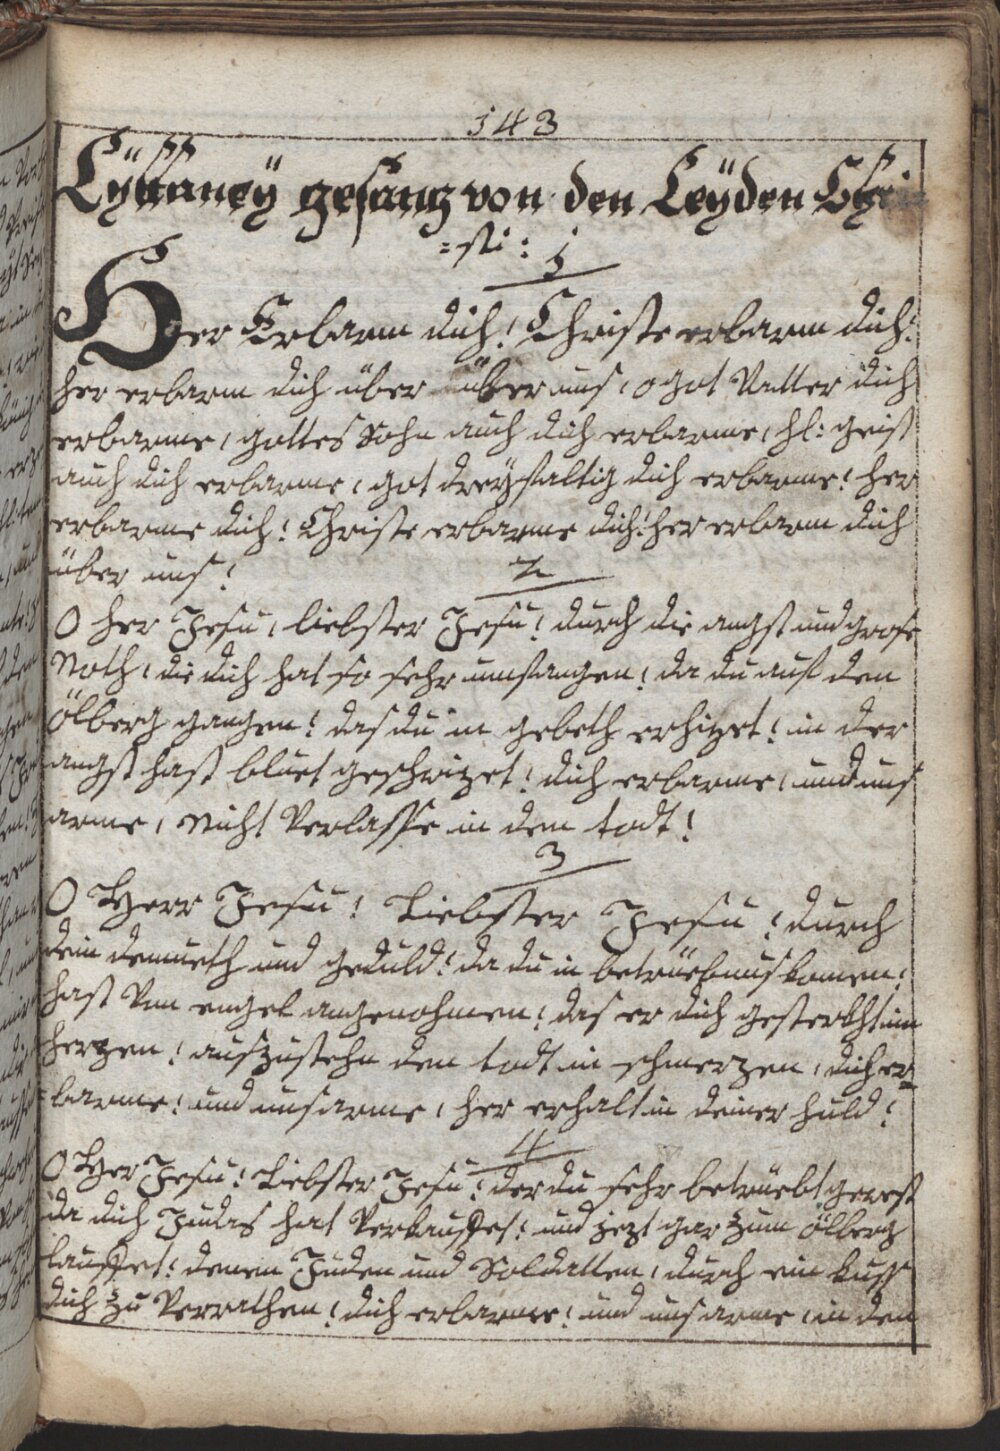 143
Lÿttaneÿ gesang von den Leÿden Chri
=sti:
1
Her Erbarm dich! Christe erbarm dich!
her erbarm dich über über uns, o got Vatter dich
erbarme, gottes Sohn auch dich erbarme, hl: geist
auch dich erbarme, got dreÿfaltig dich erbarme! her
erbarme dich! Christe erbarme dich! her erbarm dich
über uns!
2
O her Jesu, liebster Jesu! durch die angst und grose
Noth, die dich hat so sehr umfangen! da du auf den
Ölberg gangen! das du in gebeth erhizet! in der
angst hast bluet geschwizet! dich erbarme, und uns
arme, nicht Verlasse in dem todt!
3
O Herr Jesu! Liebster Jesu! durch
dein demueth und geduld! da du in betrüebnus komen!
hast Von engel angenohmen! das er dich gesterkht im
herzen! auszustehn den todt in schmerzen, dich er=
=barme! und uns arme, her erhalt in deiner huld!
4
O Her Jesu! Liebster Jesu! der du sehr betrüebt gewest
da dich Judas hat Verkauffet! und jezt gar zum Ölberg
lauffet! denen Juden und Soldatten, durch ein kuss
dich zu Verrathen! dich erbarme! und uns arme, in den